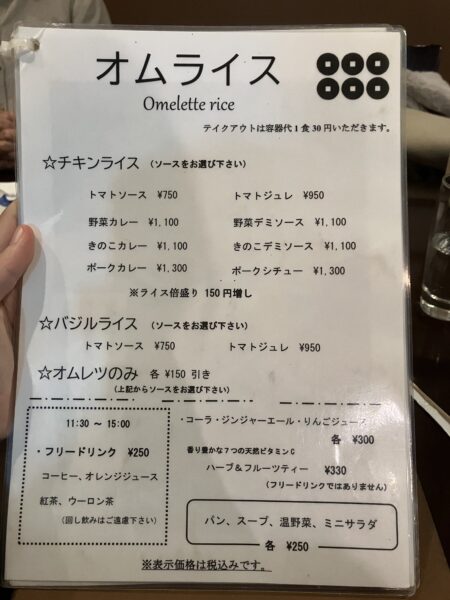 オムライス
Omelette rice
テイクアウトは容器代1食30円いただきます。
☆チキンライス （ソースをお選び下さい）
トマトソース ¥750 トマトジュレ ¥950
野菜カレー ¥1,100 野菜デミソース ¥1,100
きのこカレー ¥1,100 きのこデミソース ¥1,100
ポークカレー ¥1,300 ポークシチュー ¥1,300
※ライス倍盛り 150円増し
☆バジルライス （ソースをお選び下さい）
トマトソース ¥750 トマトジュレ ¥950
☆オムレツのみ 各 ¥150 引き
（上記からソースをお選び下さい）
11:30 ～ 15:00
・フリードリンク ¥250
コーヒー、オレンジジュース
紅茶、ウーロン茶
（回し飲みはご遠慮下さい）
・コーラ・ジンジャーエール・りんごジュース
各 ¥300
香り豊かな7つの天然ビタミンC
ハーブ＆フルーツティー ¥330
（フリードリンクではありません）
パン、スープ、温野菜、ミニサラダ
各 ¥250
※表示価格は税込みです。